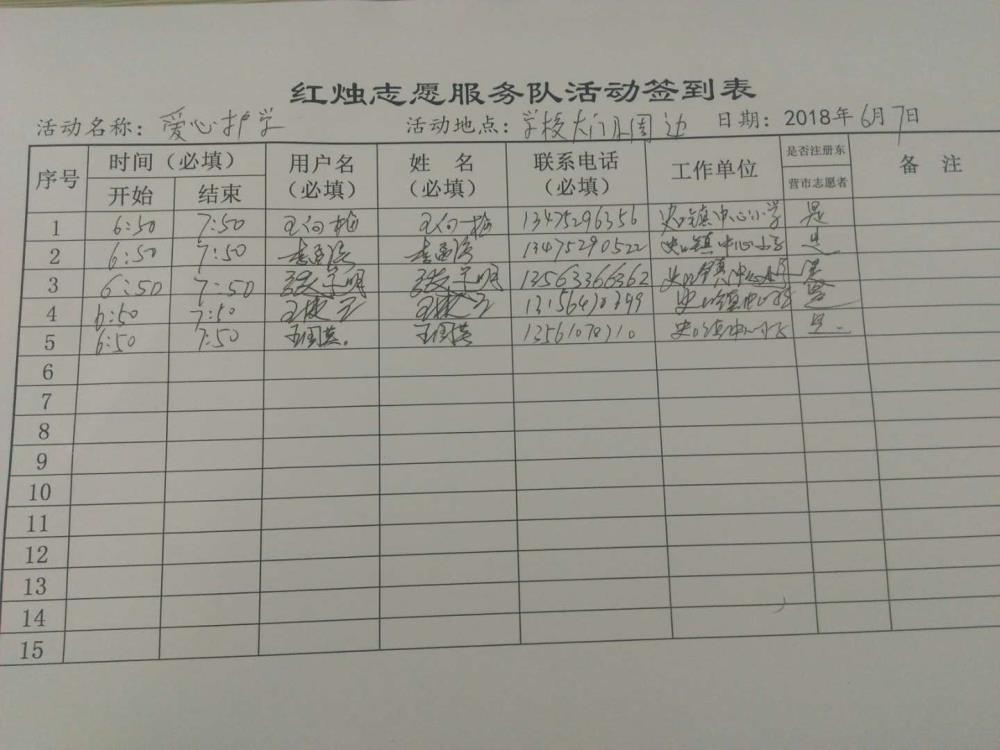 红烛志愿服务队活动签到表
活动名称：爱心护学 活动地点：学校大门周边 日期：2018年6月7日
序号 时间（必填） 用户名（必填） 姓 名（必填） 联系电话（必填） 工作单位 是否注册东营市志愿者 备 注
开始 结束
1 6:50 7:50 13475296356 史口镇中心小学 是
2 6:50 7:50 13475290522 史口镇中心小学 是
3 6:50 7:50 13563366362 史口镇中心小学 是
4 6:50 7:50 史口镇中心小学 是
5 6:50 7:50 史口镇中心小学 是
6
7
8
9
10
11
12
13
14
15